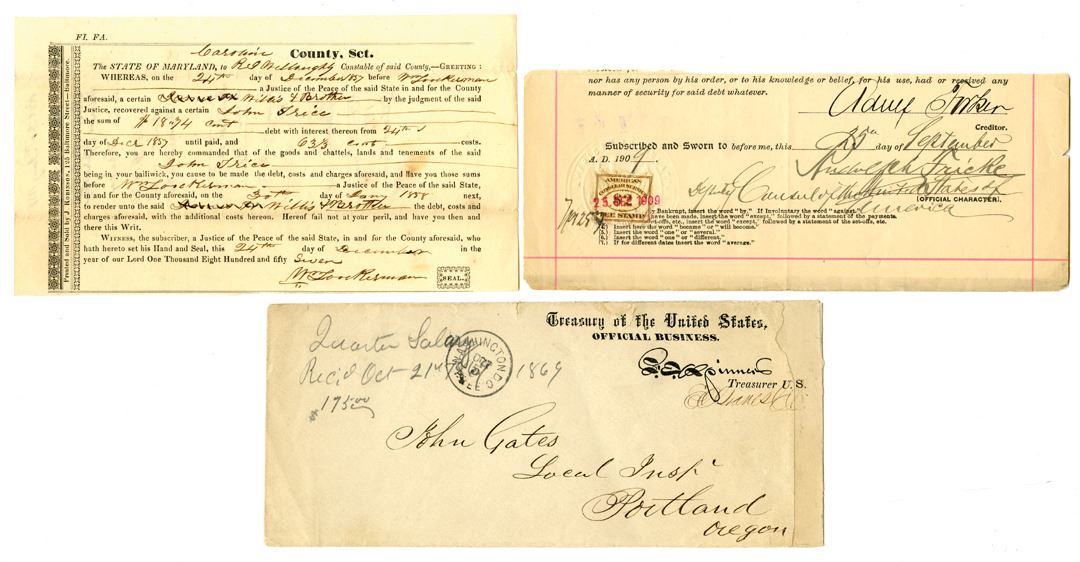 FI. FA.
Caroline County, Sct.
The STATE OF MARYLAND, to Constable of said County,—GREETING:
WHEREAS, on the 24th day of December 1857 before Wm Lockerman
a Justice of the Peace of said State in and for the County
aforesaid, a certain Willis & Brother by the judgment of the said
Justice, recovered against a certain John Price
the sum of debt with interest thereon from 24th
day of Decr 1857 until paid, and 63⅓ cents costs.
Therefore, you are hereby commanded that of the goods and chattels, lands and tenements of the said
John Price
being in your bailiwick, you cause to be made the debt, costs and charges aforesaid, and Have you those sums
before Wm Lockerman a Justice of the Peace of the said State,
in and for the County aforesaid, on the day of 1858 next,
to render unto the said Willis & Brother the debt, costs and
charges aforesaid, with the additional costs hereon. Hereof fail not at your peril, and have you then and
there this Writ.
WITNESS, the subscriber, a Justice of the Peace of the said State, in and for the County aforesaid, who
hath hereto set his Hand and Seal, this 24th day of December in the
year of our Lord One Thousand Eight Hundred and fifty Seven
Wm Lockerman SEAL.
Printed and Sold by J. ROBINSON, 125 Baltimore Street—Baltimore.
nor has any person by his order, or to his knowledge or belief, for his use, had or received any
manner of security for said debt whatever.
Creditor.
Subscribed and Sworn to before me, this 25 day of September
A. D. 1909.
Rudolph Fricke
Deputy Consul of the United States of
America
(OFFICIAL CHARACTER.)
AMERICAN
CONSULAR SERVICE
25 SEP 1909
FEE STAMP
Bankrupt, insert the word "by." If involuntary the word "against."
have been made, insert the word "except," followed by a statement of the payments.
insert the word "except," followed by a statement of the set-offs, etc.
Insert here the word "became" or "will become."
Insert the word "one" or "several."
Insert the word "one" or "different."
If for different dates insert the word "average."
Treasury of the United States,
OFFICIAL BUSINESS.
F. E. Spinner
Treasurer U. S.
Quarter Salary
Rec'd Oct 21st 1869
$175.00
WASHINGTON D.C.
FREE
John Gates
Local Insp.
Portland
Oregon